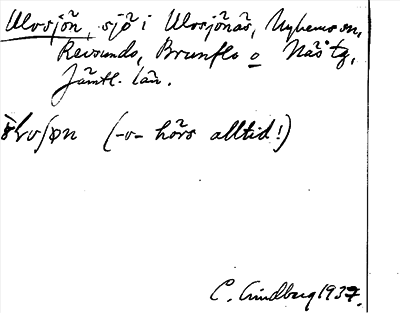 Ulvsjön, sjö i Ulvsjönäs, Nyhems sn,
Revsunds, Brunflo o Näs tg,
Jämtl. län.
(-v- hörs alltid!)
C. Lindberg 1937.